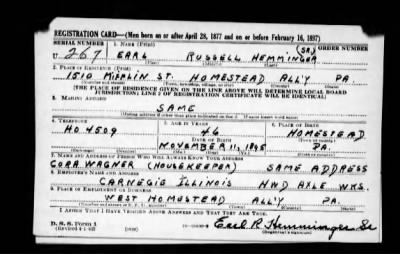 REGISTRATION CARD—(Men born on or after April 28, 1877 and on or before February 16, 1897)
SERIAL NUMBER 1. NAME (Print) ORDER NUMBER
U 267 EARL RUSSELL HEMMINGER (SR.)
2. PLACE OF RESIDENCE (Print)
1510 MIFFLIN ST. HOMESTEAD ALL'Y PA.
[THE PLACE OF RESIDENCE GIVEN ON THE LINE ABOVE WILL DETERMINE LOCAL BOARD
JURISDICTION; LINE 2 OF REGISTRATION CERTIFICATE WILL BE IDENTICAL]
3. MAILING ADDRESS
SAME
4. TELEPHONE 5. AGE IN YEARS 6. PLACE OF BIRTH
HO 4509 46 HOMESTEAD
DATE OF BIRTH
NOVEMBER 11, 1895 PA.
7. NAME AND ADDRESS OF PERSON WHO WILL ALWAYS KNOW YOUR ADDRESS
CORA WAGNER (HOUSEKEEPER) SAME ADDRESS
8. EMPLOYER'S NAME AND ADDRESS
CARNEGIE ILLINOIS HWD AXLE WKS.
9. PLACE OF EMPLOYMENT OR BUSINESS
WEST HOMESTEAD ALL'Y PA.
I AFFIRM THAT I HAVE VERIFIED ABOVE ANSWERS AND THAT THEY ARE TRUE.
D. S. S. Form 1
(Revised 4-1-42)
Earl R. Hemminger Sr
(Registrant's signature)